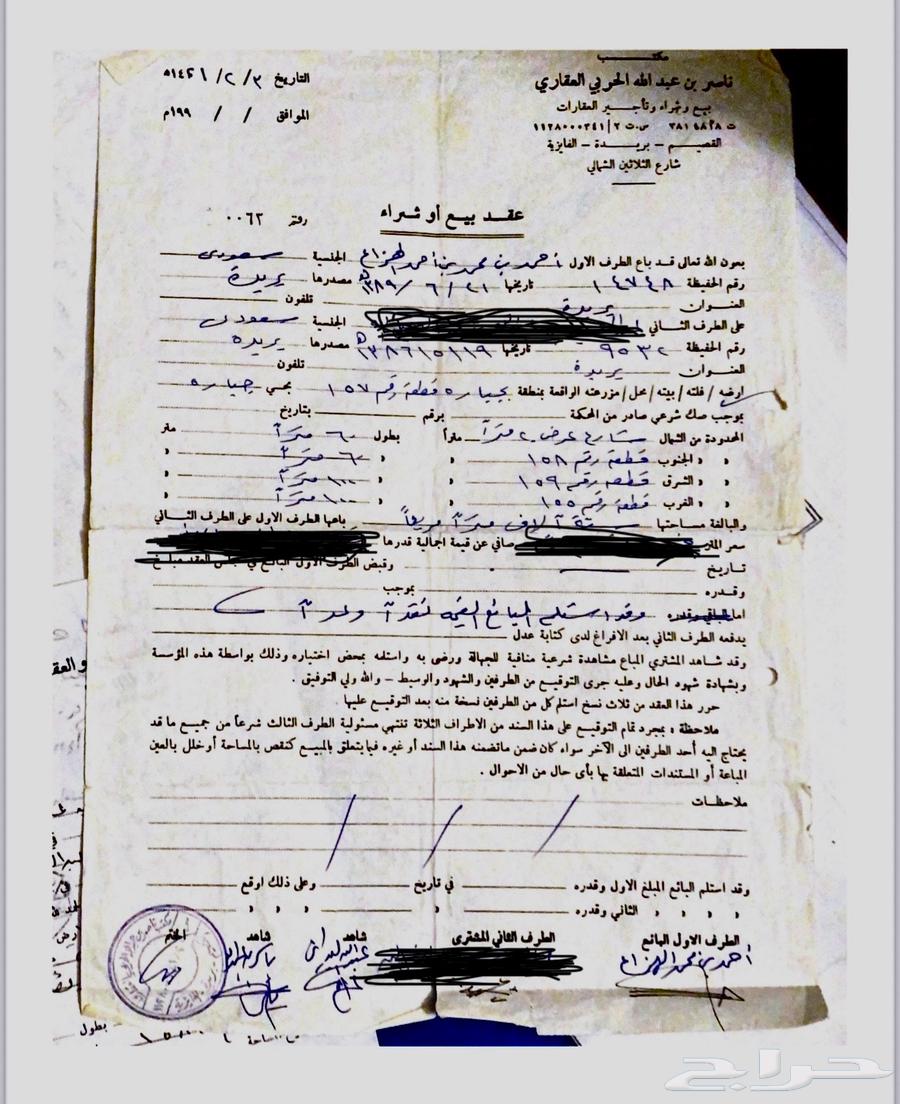 مكتب
ناصر بن عبد الله الحربي العقاري
بيع وشراء وتأجير العقارات
ت ٣٨١٤٨٢٨ س.ت ١١٢٨٠٠٠٣٤١/٢
القصيم - بريدة - الفايزية
شارع الثلاثين الشمالي
التاريخ ٣/ ٢/ ١٤٢١هـ
الموافق / / ١٩٩م
عقد بيع أو شراء
رقم ٠٠٦٢
بعون الله تعالى قد باع الطرف الاول أحمد بن محمد بن أحمد الهزاع الجنسية سعودي
رقم الحفيظة ١٤٧٤٨ تاريخها ٢١/ ٦/ ١٣٨٩هـ مصدرها بريدة
العنوان بريدة تلفون
على الطرف الثاني الجنسية سعودي
رقم الحفيظة ٩٥٣٢ تاريخها مصدرها بريدة
العنوان بريدة تلفون
ارضه / فلته / بيته / محل / مزرعته الواقعة بمنطقة قطعة رقم ١٥٧ بحي
بموجب صك شرعي صادر من المحكمة برقم بتاريخ
المحدودة من الشمال شارع عرض ٢٠ متراً متراً بطول ٦٠ متراً متر
» » الجنوب قطعة رقم ١٥٨ » » ٦٠ متراً »
» » الشرق قطعة رقم ١٥٩ » » ١٠٠ متراً »
» » الغرب قطعة رقم ١٥٥ » » ١٠٠ متراً »
والبالغة مساحتها ستة آلاف متراً مربعاً باعها الطرف الاول على الطرف الثاني
سعر المتر صافي عن قيمة اجمالية قدرها
تاريخ وقبض الطرف الاول البائع في مجلس العقد مبلغ
وقدره بموجب
اما وقد استلم البائع القيمة نقداً وعداً
يدفعه الطرف الثاني بعد الافراغ لدى كتابة عدل
وقد شاهد المشتري المباع مشاهدة شرعية منافية للجهالة ورضى به واستلمه بمحض اختياره وذلك بواسطة هذه المؤسسة
وبشهادة شهود الحال وعليه جرى التوقيع من الطرفين والشهود والوسيط - والله ولي التوفيق .
حرر هذا العقد من ثلاث نسخ استلم كل من الطرفين نسخة منه بعد التوقيع عليها .
ملاحظة : بمجرد تمام التوقيع على هذا السند من الاطراف الثلاثة تنتهي مسئولية الطرف الثالث شرعاً من جميع ما قد
يحتاج اليه أحد الطرفين الى الآخر سواء كان ضمن ماتضمنه هذا السند أو غيره فيما يتعلق بالمبيع كنقص بالمساحة أو خلل بالعين
المباعة أو المستندات المتعلقة بها بأى حال من الاحوال .
ملاحظات
وقد استلم البائع المبلغ الاول وقدره في تاريخ وعلى ذلك اوقع
» » » » الثاني وقدره » » » »
الطرف الاول البائع الطرف الثاني المشترى شاهد شاهد الختم
أحمد بن محمد الهزاع
بطول
المساحة
حراج